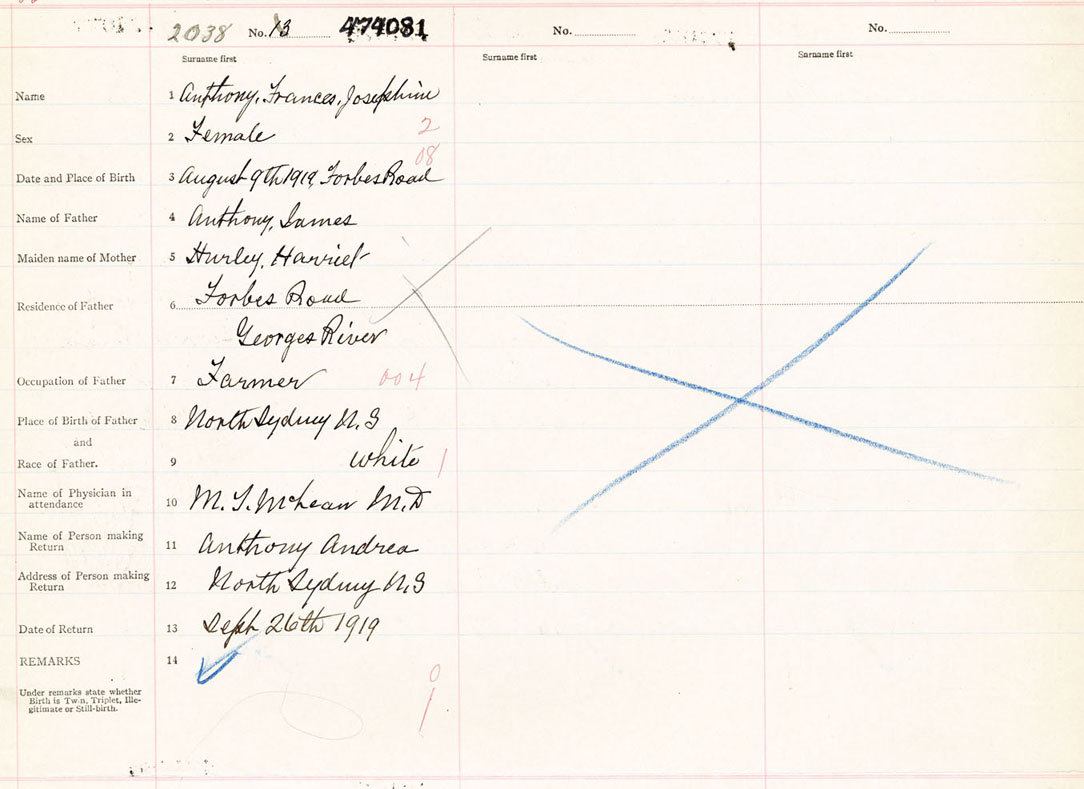 2038 No. 13 474081
No.
No.
Surname first
Surname first
Surname first
Name 1 Anthony, Frances, Josephine
Sex 2 Female 2
08
Date and Place of Birth 3 August 9th 1919, Forbes Road
Name of Father 4 Anthony, James
Maiden name of Mother 5 Hurley, Harriet
Residence of Father 6 Forbes Road
Georges River
Occupation of Father 7 Farmer 004
Place of Birth of Father 8 North Sydney N.S
and
Race of Father. 9 White 1
Name of Physician in
attendance 10 M. T. McLean M.D
Name of Person making
Return 11 Anthony Andrea
Address of Person making
Return 12 North Sydney N.S
Date of Return 13 Sept 26th 1919
REMARKS 14
0
1
Under remarks state whether
Birth is Twin, Triplet, Ille-
gitimate or Still-birth.